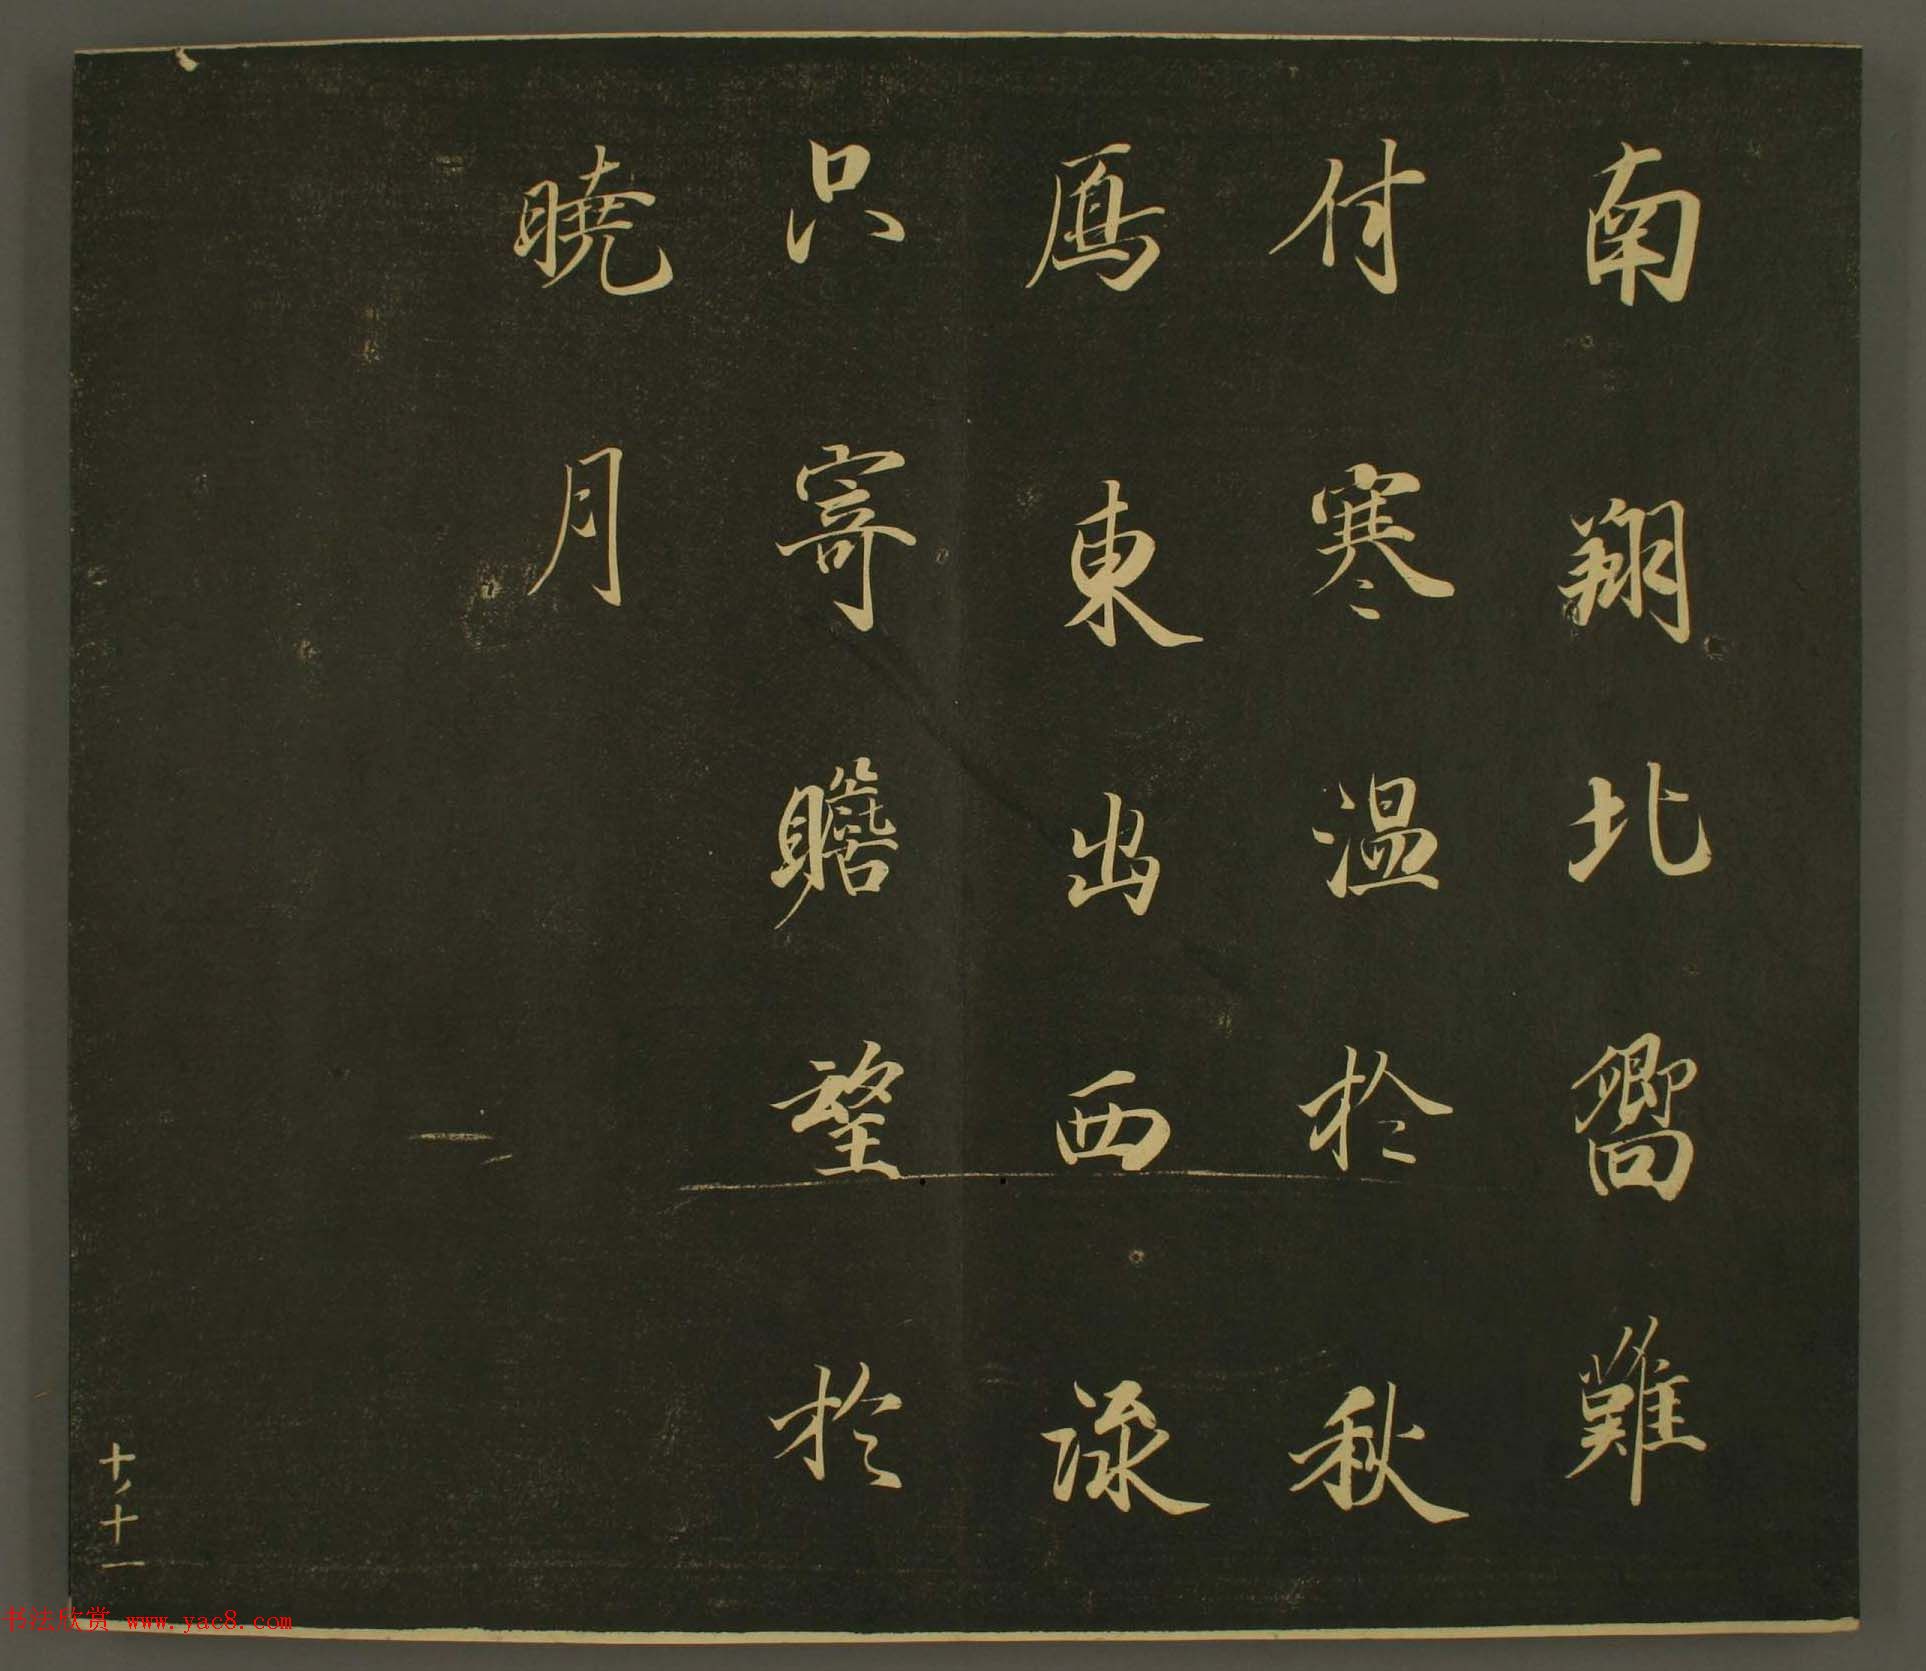 南翔北嚮難
付寒溫於秋
鴈東出西流
只寄瞻望於
曉月
十ノ十一
书法欣赏 www.yac8.com